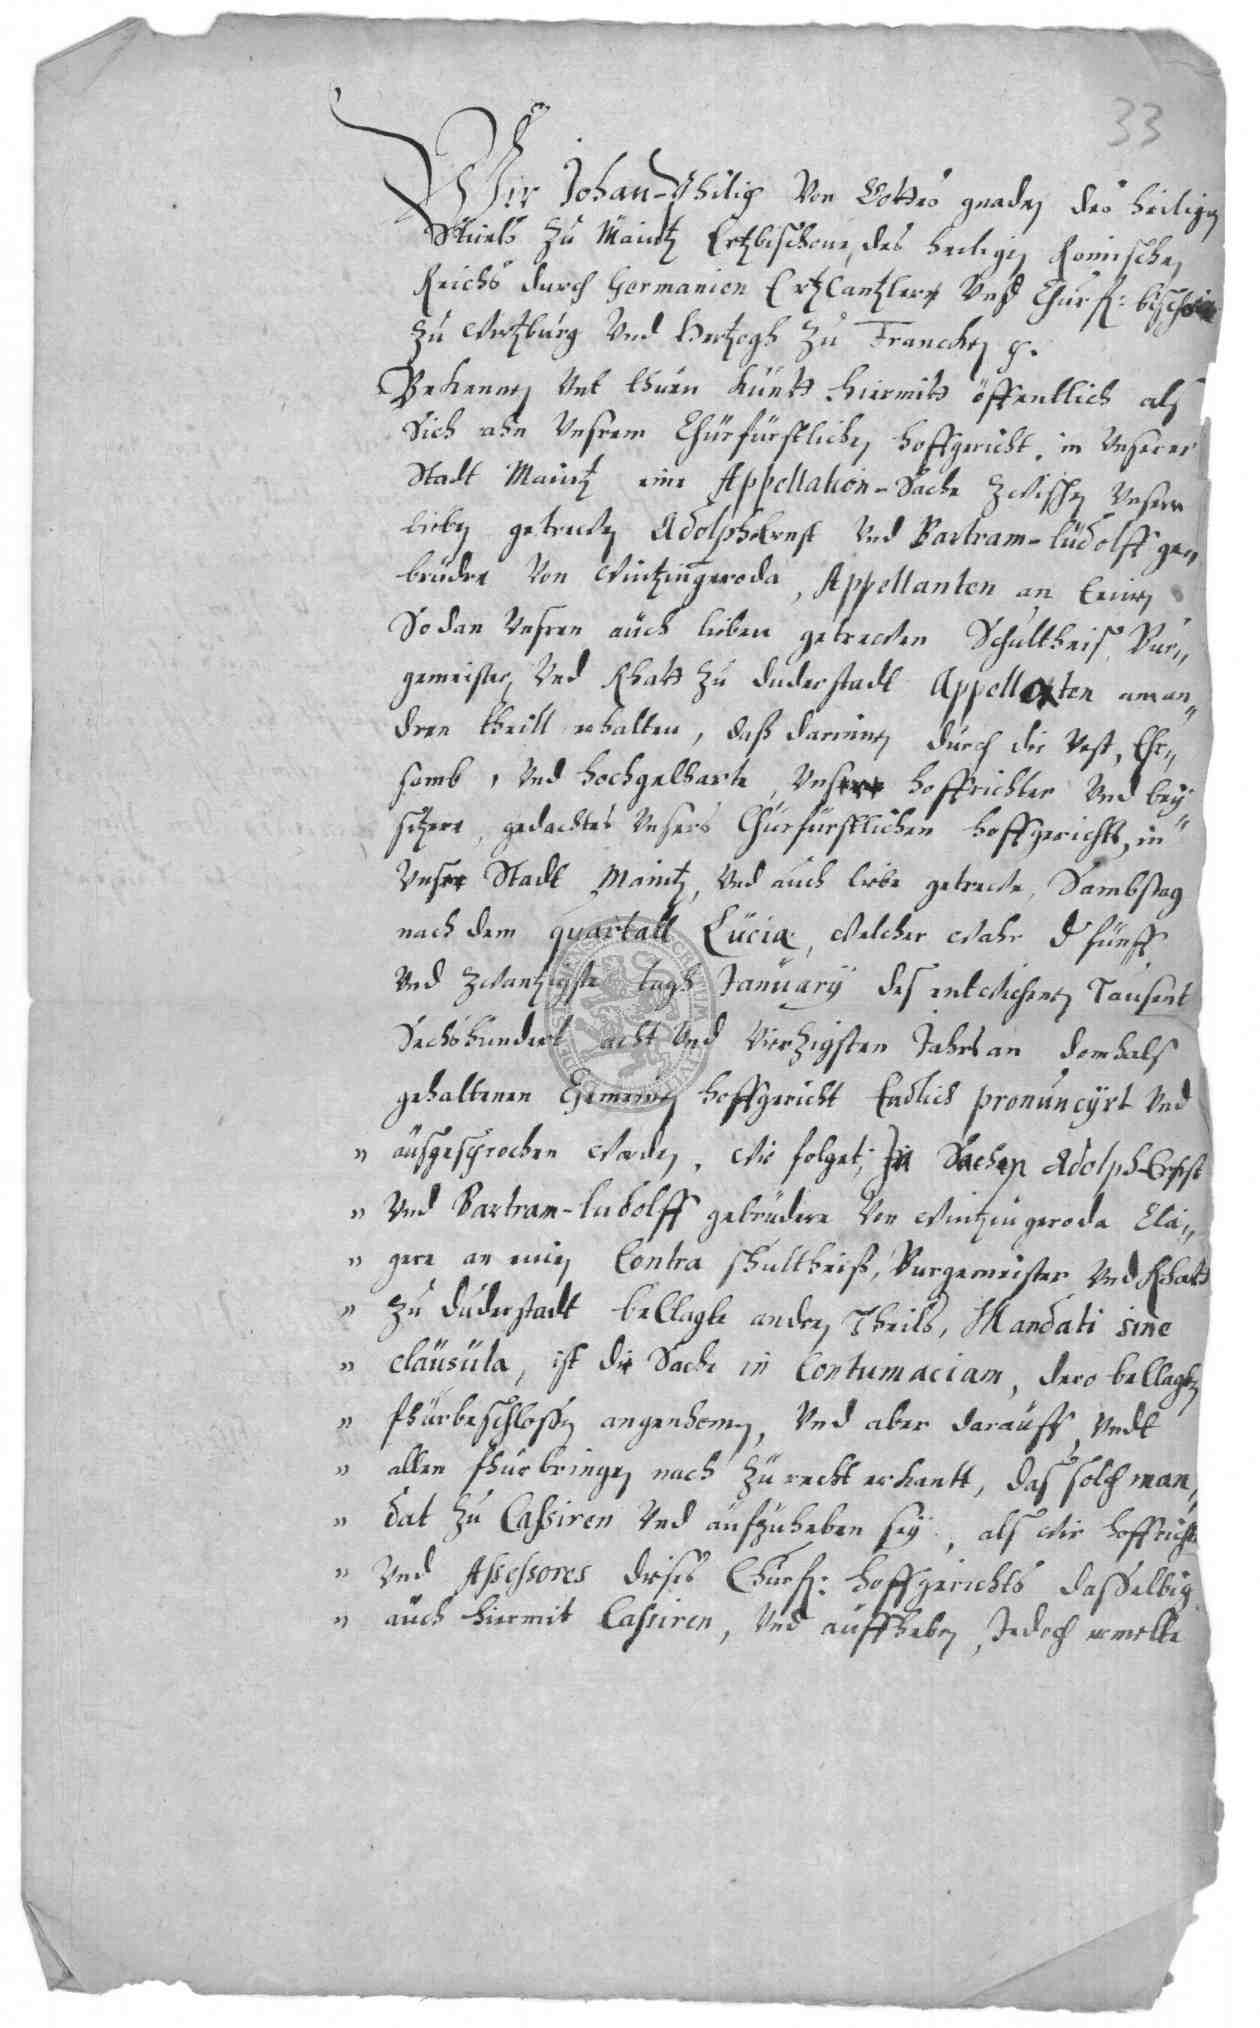 33
Wir Johan-Philips Von Gottes gnaden des heiligen
Stuels Zu Maintz Ertzbischoue, des heiligen Romischen
Reichs durch Germanien ErtzCantzlere Vnd Churf: bischoue
zu Wirtzburg Vnd Hertzogh Zu Francken p.
Bekennen Vnt thuen kundt hiermitt öffentlich als
Sich ahn Unsrem Churfürstlichen hoffgericht in Unserer
Stadt Maintz eine Appellation-Sache Zwischen Unsern
lieben getrewen Adolph-Ernst Vnd Bartram-Ludolff ge„
brüdere Von Wintzingeroda, Appellanten an Einen
Sodan Unsren auch lieben getrewen Schultheis, Bur„
gemeister, Vnd Rhatt Zu duderstadt Appellaten am an„
dren theill erhalten, daß darinnen durch die Vest, Ehr„
samb, Vnd hochgelharte, Unsere hoffrichter Vnd bey„
sitzere, gedachtes Unsers Churfürstlichen hoffgerichts, in
Unsre Stadt Maintz, Vnd auch liebe getrewe, Sambstag
nach dem quartall Luciæ, welcher wahr d fünff
Vnd Zwantzigste tagh January des entwichenen Tausent
Sechshundert acht Vnd Vierzigsten Jahrs an domhals
gehaltenen Gemeinen hoffgericht Endlich pronuncyrt Vnd
„ außgesprochen worden, wie folget; In Sachen Adolph-Ernst
„ Vnd Bartram-Ludolff gebrüdere Von Wintzingeroda Clä„
„ gere an einen Contra schultheiß, Burgemeister Vnd Rhatt
„ Zu duderstadt beklagte andren Theils, Mandati sine
„ clausula, ist die Sache in Contumaciam, dero beklagten
„ fhürbeschloßen angenhomen, Vnd aber darauff, Vndt
„ allem fhurbringen nach Zu recht erkantt, das solch man„
„ dat zu Cassiren Vnd aufzuheben sey, als wir hoffrichter
„ Vnd Assessores dieses Churf: hoffgerichts dasselbig
„ auch hiermit Cassiren, Vnd auffheben, Jedoch ermelte